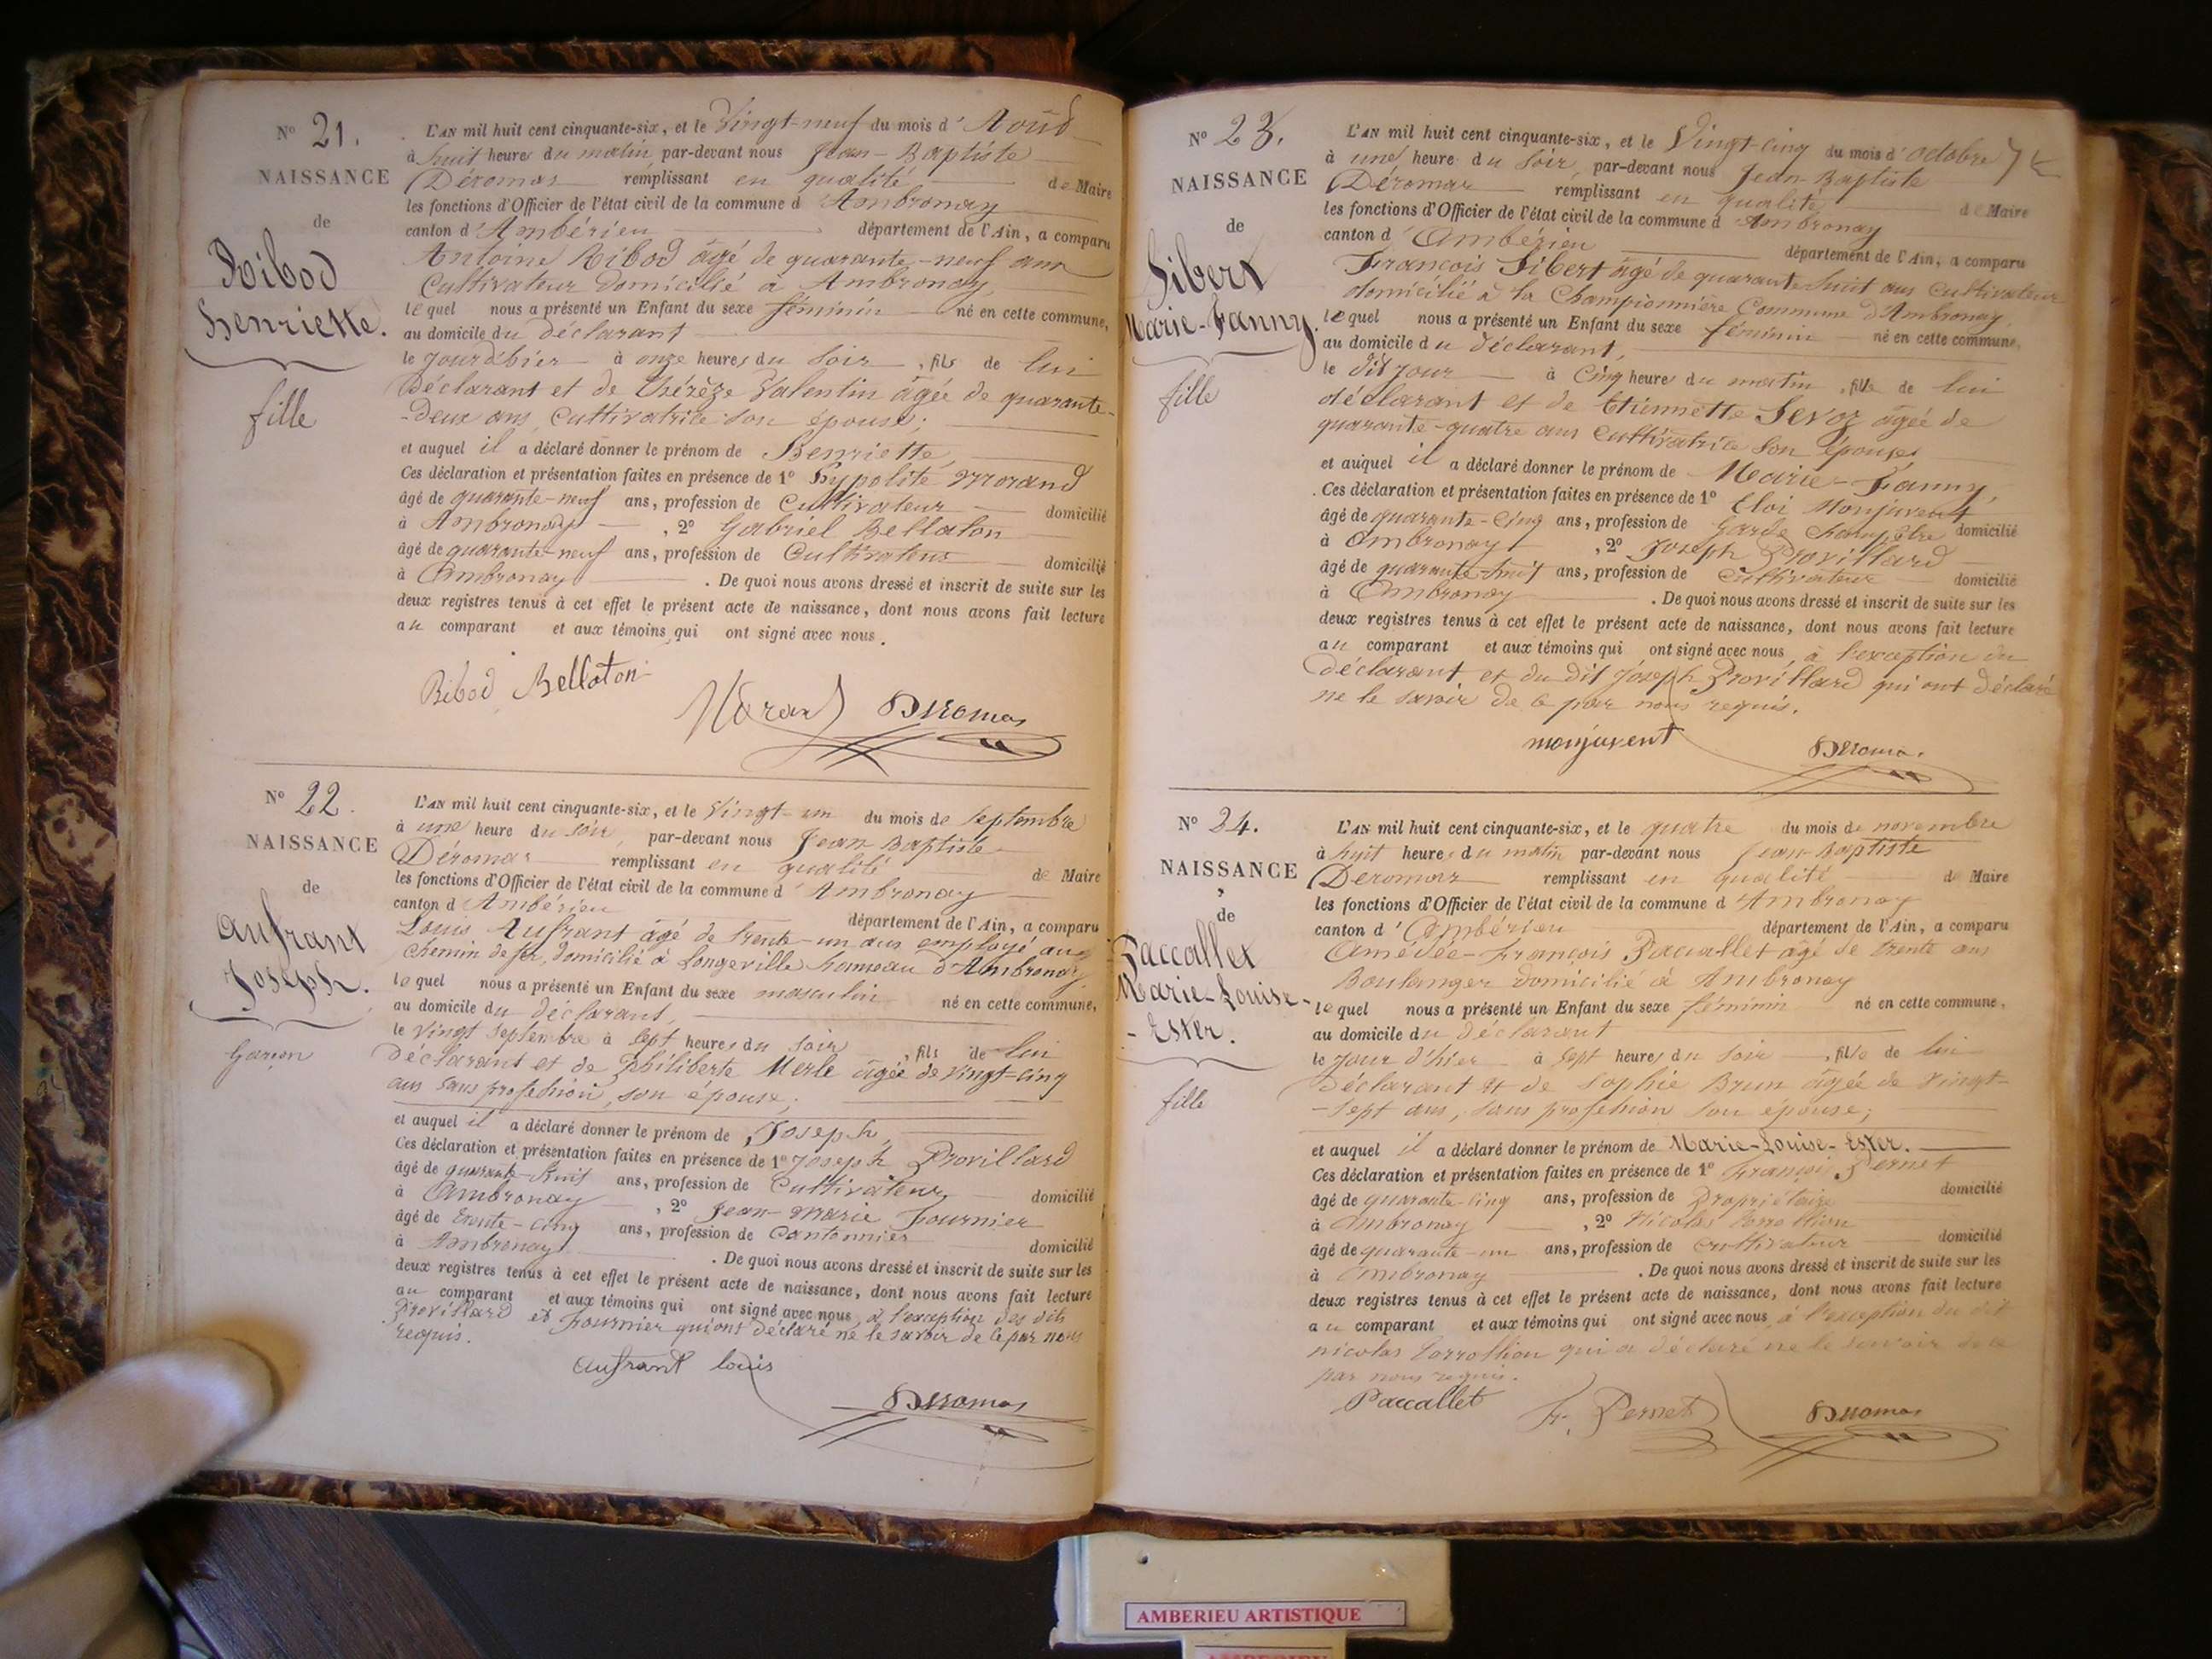 N° 21.
NAISSANCE
de
Ribod
Henriette.
fille
L'AN mil huit cent cinquante-six, et le Vingt-neuf du mois d'Août
à huit heures du matin, par-devant nous Jean-Baptiste
Déromas remplissant en qualité de Maire
les fonctions d'Officier de l'état civil de la commune d'Ambronay
canton d'Ambérieu département de l'Ain, a comparu
Antoine Ribod âgé de quarante-neuf ans
Cultivateur domicilié à Ambronay,
lequel nous a présenté un Enfant du sexe féminin né en cette commune,
au domicile du déclarant
le jour d'hier à onze heures du soir, fils de lui
déclarant et de Thérèze Valentin âgée de quarante-
-deux ans, cultivatrice son épouse;
et auquel il a déclaré donner le prénom de Henriette,
Ces déclaration et présentation faites en présence de 1° Hypolite Morand
âgé de quarante-neuf ans, profession de Cultivateur domicilié
à Ambronay, 2° Gabriel Bellaton
âgé de quarante-neuf ans, profession de Cultivateur domicilié
à Ambronay. De quoi nous avons dressé et inscrit de suite sur les
deux registres tenus à cet effet le présent acte de naissance, dont nous avons fait lecture
au comparant et aux témoins qui ont signé avec nous.
Ribod Bellaton
Morand Deromas
N° 22.
NAISSANCE
de
Aufrant
Joseph.
Garçon
L'AN mil huit cent cinquante-six, et le Vingt-un du mois de Septembre
à une heure du soir, par-devant nous Jean Baptiste
Déromas remplissant en qualité de Maire
les fonctions d'Officier de l'état civil de la commune d'Ambronay
canton d'Ambérieu département de l'Ain, a comparu
Louis Aufrant âgé de trente-un ans employé au
chemin de fer, domicilié à Longeville hameau d'Ambronay,
lequel nous a présenté un Enfant du sexe masculin né en cette commune,
au domicile du déclarant,
le Vingt Septembre à sept heures du soir, fils de lui
déclarant et de Philiberte Merle âgée de vingt-cinq
ans sans profession, son épouse;
et auquel il a déclaré donner le prénom de Joseph,
Ces déclaration et présentation faites en présence de 1° Joseph Provillard
âgé de quarante-huit ans, profession de Cultivateur, domicilié
à Ambronay, 2° Jean-Marie Fournier
âgé de trente-cinq ans, profession de Cantonnier domicilié
à Ambronay. De quoi nous avons dressé et inscrit de suite sur les
deux registres tenus à cet effet le présent acte de naissance, dont nous avons fait lecture
au comparant et aux témoins qui ont signé avec nous, à l'exception des dits
Provillard et Fournier qui ont déclaré ne le savoir de ce par nous
requis.
Aufrant louis
Deromas
N° 23.
NAISSANCE
de
Sibert
Marie-Fanny.
fille
L'AN mil huit cent cinquante-six, et le Vingt-cinq du mois d'octobre
à une heure du soir, par-devant nous Jean-Baptiste
Déromas remplissant en qualité de Maire
les fonctions d'Officier de l'état civil de la commune d'Ambronay
canton d'Ambérieu département de l'Ain, a comparu
François Sibert âgé de quarante-huit ans cultivateur
domicilié à la Championnière Commune d'Ambronay,
lequel nous a présenté un Enfant du sexe féminin né en cette commune,
au domicile du déclarant,
le dit jour à cinq heures du matin, fille de lui
déclarant et de Etiennette Sevoz âgée de
quarante-quatre ans cultivatrice son épouse,
et auquel il a déclaré donner le prénom de Marie-Fanny,
Ces déclaration et présentation faites en présence de 1° Eloi Monjuvent
âgé de quarante-cinq ans, profession de Garde Champêtre domicilié
à Ambronay, 2° Joseph Provillard
âgé de quarante-huit ans, profession de cultivateur domicilié
à Ambronay. De quoi nous avons dressé et inscrit de suite sur les
deux registres tenus à cet effet le présent acte de naissance, dont nous avons fait lecture
au comparant et aux témoins qui ont signé avec nous, à l'exception du
déclarant et du dit Joseph Provillard qui ont déclaré
ne le savoir de ce par nous requis.
monjuvent Deromas
N° 24.
NAISSANCE
de
Paccallet
Marie-Louise-
-Ester.
fille
L'AN mil huit cent cinquante-six, et le quatre du mois de novembre
à huit heures du matin par-devant nous Jean-Baptiste
Deromas remplissant en qualité de Maire
les fonctions d'Officier de l'état civil de la commune d'Ambronay
canton d'Ambérieu département de l'Ain, a comparu
Amédée-François Paccallet âgé de trente ans
Boulanger domicilié à Ambronay
lequel nous a présenté un Enfant du sexe féminin né en cette commune,
au domicile du déclarant
le jour d'hier à sept heures du soir, fille de lui
déclarant et de Sophie Brun âgée de vingt-
-sept ans, sans profession son épouse;
et auquel il a déclaré donner le prénom de Marie-Louise-Ester.
Ces déclaration et présentation faites en présence de 1° François Pernet
âgé de quarante-cinq ans, profession de Propriétaire domicilié
à Ambronay, 2° Nicolas
âgé de quarante-un ans, profession de cultivateur domicilié
à Ambronay. De quoi nous avons dressé et inscrit de suite sur les
deux registres tenus à cet effet le présent acte de naissance, dont nous avons fait lecture
au comparant et aux témoins qui ont signé avec nous, à l'exception du dit
nicolas qui a déclaré ne le savoir de ce
par nous requis.
Paccallet fr. Pernet Deromas
AMBERIEU ARTISTIQUE
AMBERIEU